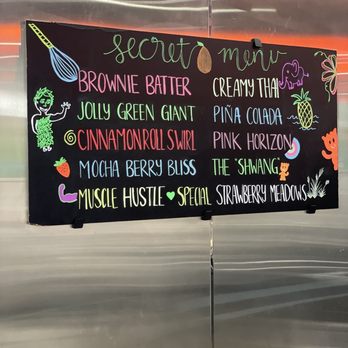 secret menu
BROWNIE BATTER
JOLLY GREEN GIANT
CINNAMON ROLL SWIRL
MOCHA BERRY BLISS
MUSCLE HUSTLE SPECIAL
CREAMY THAI
PIÑA COLADA
PINK HORIZON
THE "SHWANG"
STRAWBERRY MEADOWS